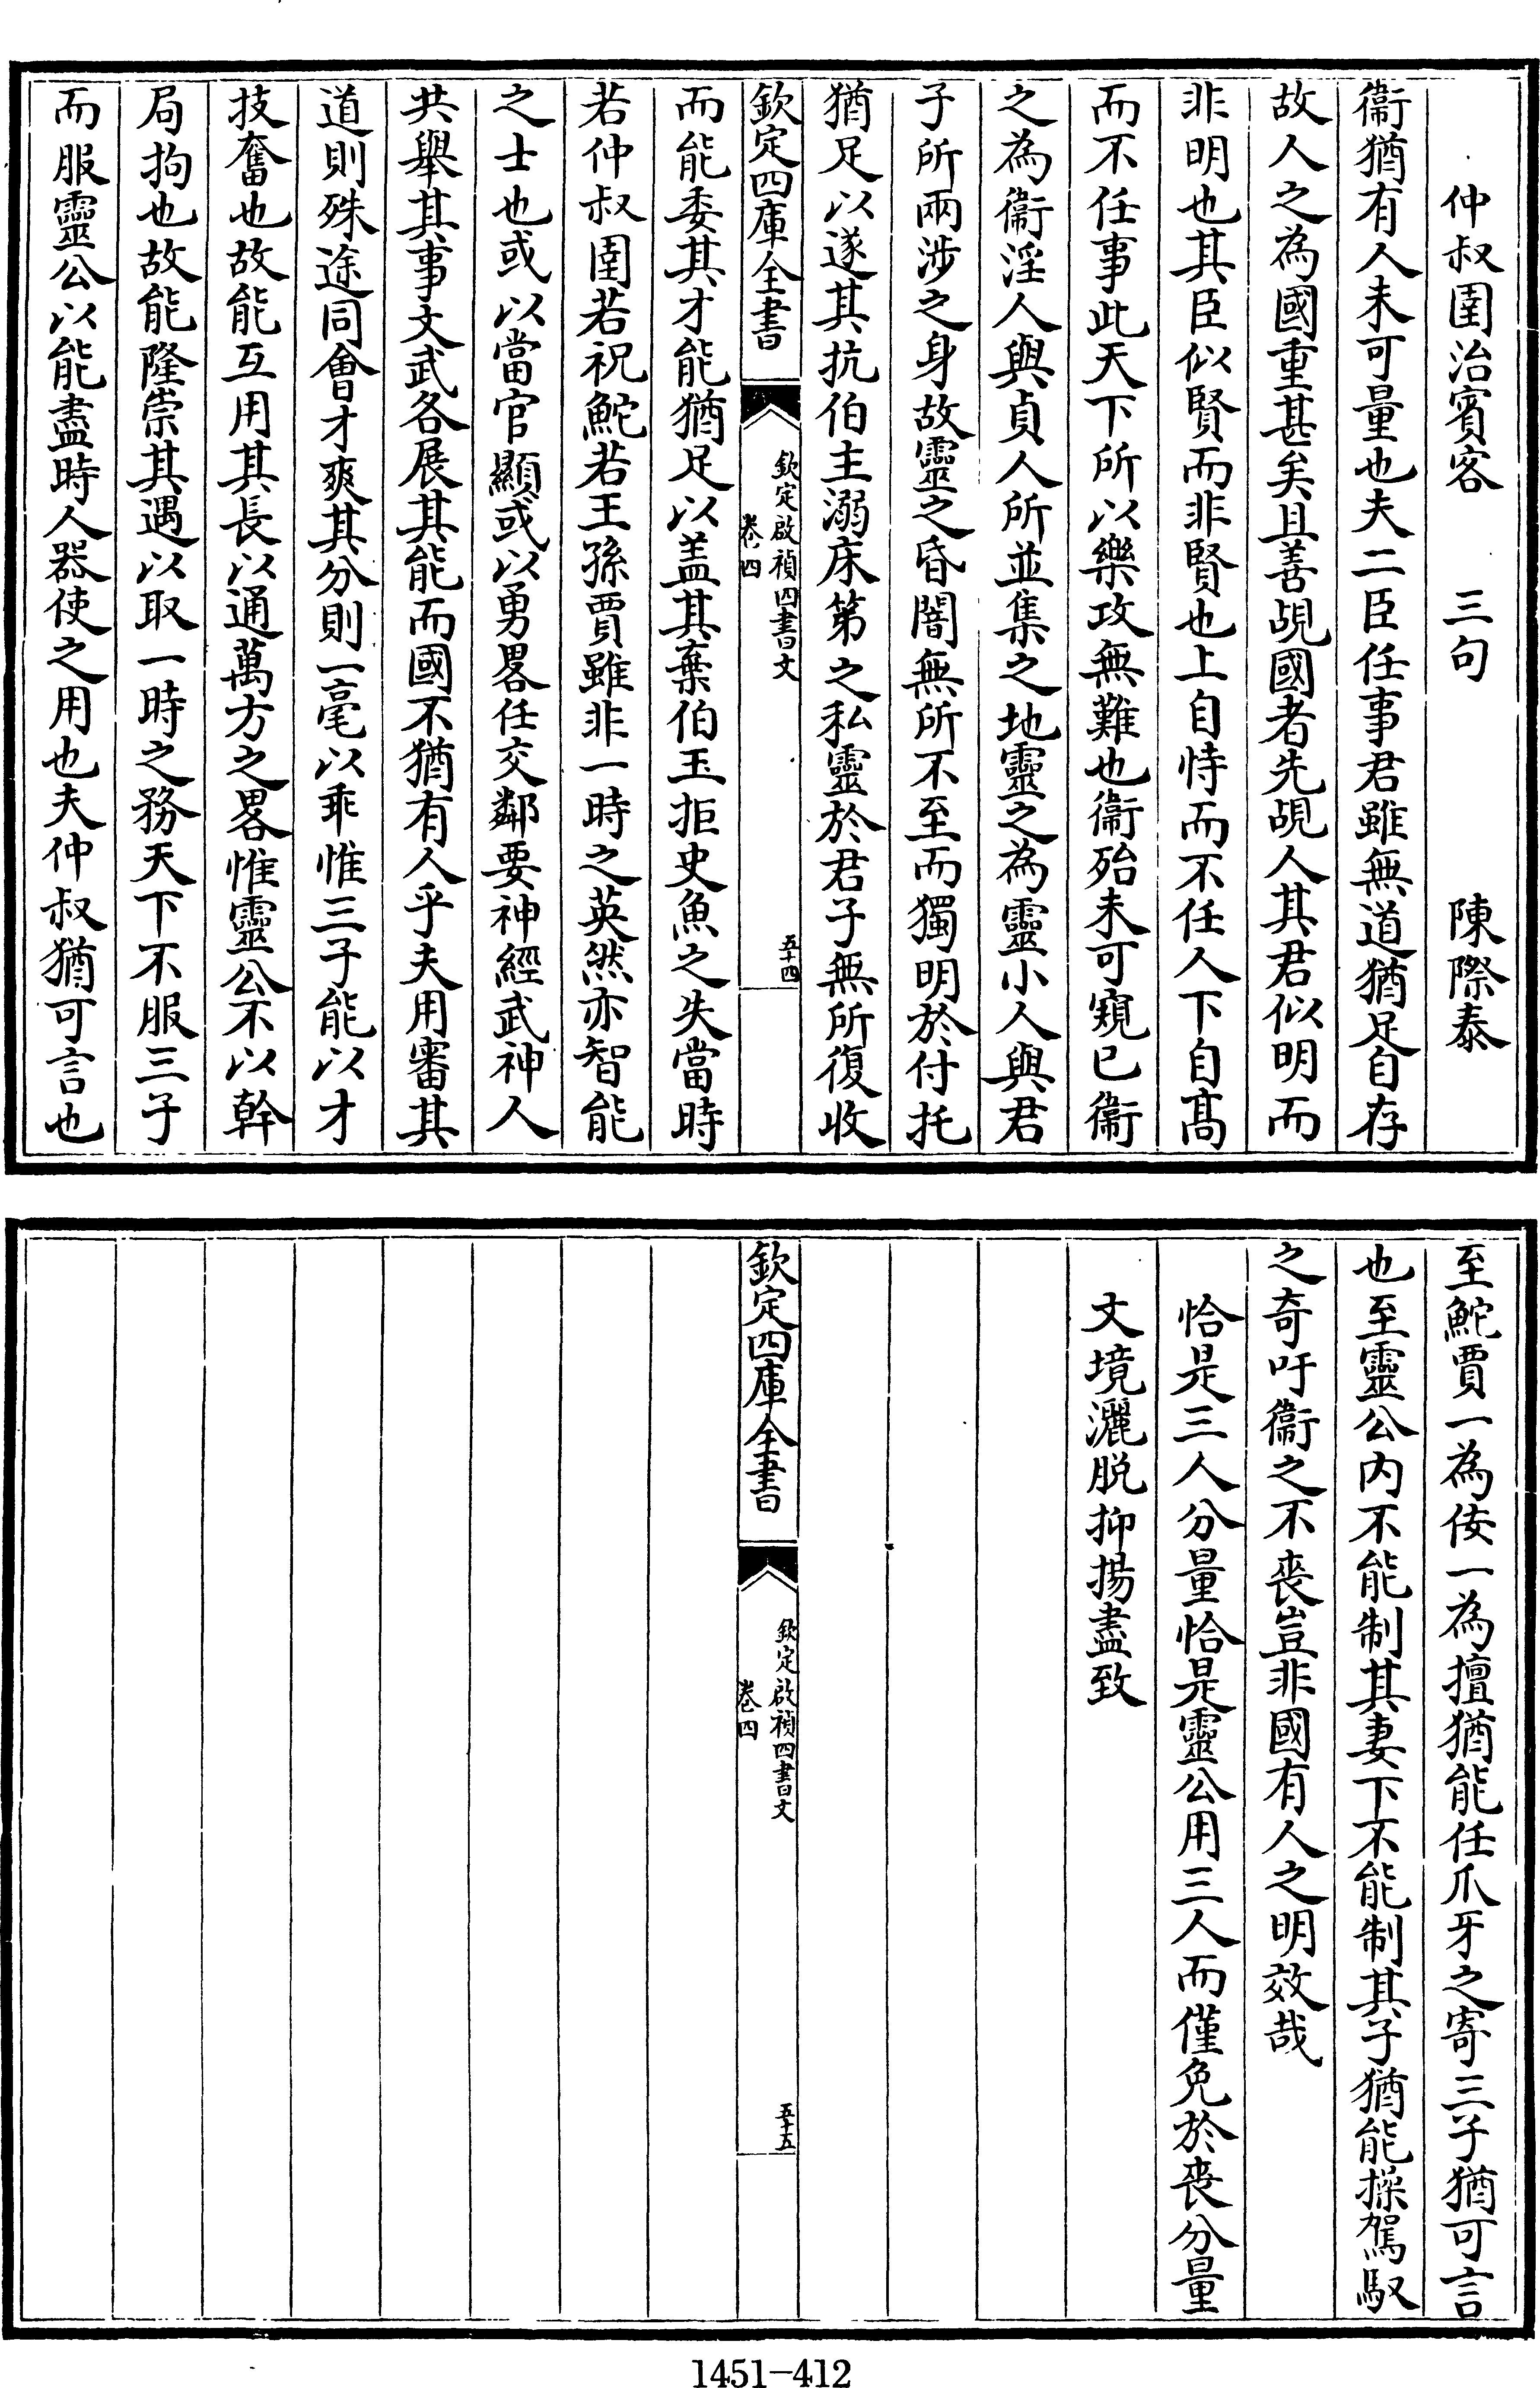 仲叔圉治賓客　三句　陳際泰
衞猶有人未可量也夫二臣任事君雖無道猶足自存
故人之為國重甚矣且善覘國者先覘人其君似明而
非明也其臣似賢而非賢也上自恃而不任人下自髙
而不任事此天下所以樂攻無難也衞殆未可窺已衞
之為衞淫人與貞人所並集之地靈之為靈小人與君
子所兩涉之身故靈之昏闇無所不至而獨明於付托
猶足以遂其抗伯主溺床第之私靈於君子無所復收
欽定四庫全書
欽定啟禎四書文
卷四
五十四
而能委其才能猶足以盖其棄伯玉拒史魚之失當時
若仲叔圉若祝鮀若王孫賈雖非一時之英然亦智能
之士也或以當官顯或以勇畧任交鄰要神經武神人
共舉其事文武各展其能而國不猶有人乎夫用審其
道則殊途同會才爽其分則一毫以乖惟三子能以才
技奮也故能互用其長以通萬方之畧惟靈公不以幹
局拘也故能隆崇其遇以取一時之務天下不服三子
而服靈公以能盡時人器使之用也夫仲叔猶可言也
至鮀賈一為佞一為擅猶能任爪牙之寄三子猶可言
也至靈公内不能制其妻下不能制其子猶能操駕馭
之奇吁衞之不喪豈非國有人之明效哉
恰是三人分量恰是靈公用三人而僅免於喪分量
文境灑脱抑揚盡致
欽定四庫全書
欽定啟禎四書文
卷四
五十五
1451-412